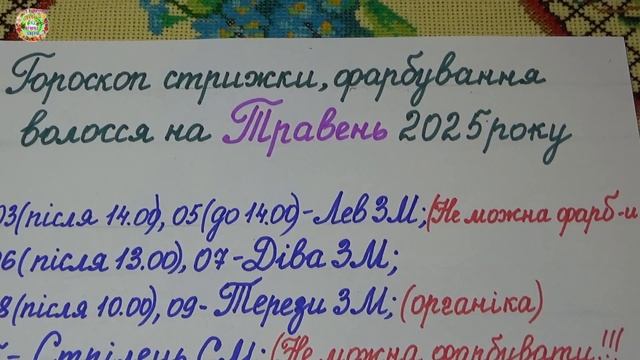 Гороскоп стрижки, фарбування
волосся на Травень 2025 року
03(після 14.00), 05(до 14.00)-Лев ЗМ; (Не можна фарб-и
06(після 13.00), 07-Діва ЗМ;
8(після 10.00), 09- Терези ЗМ; (органіка)
- Стрілець СМ; (Не можна фарбувати!!!